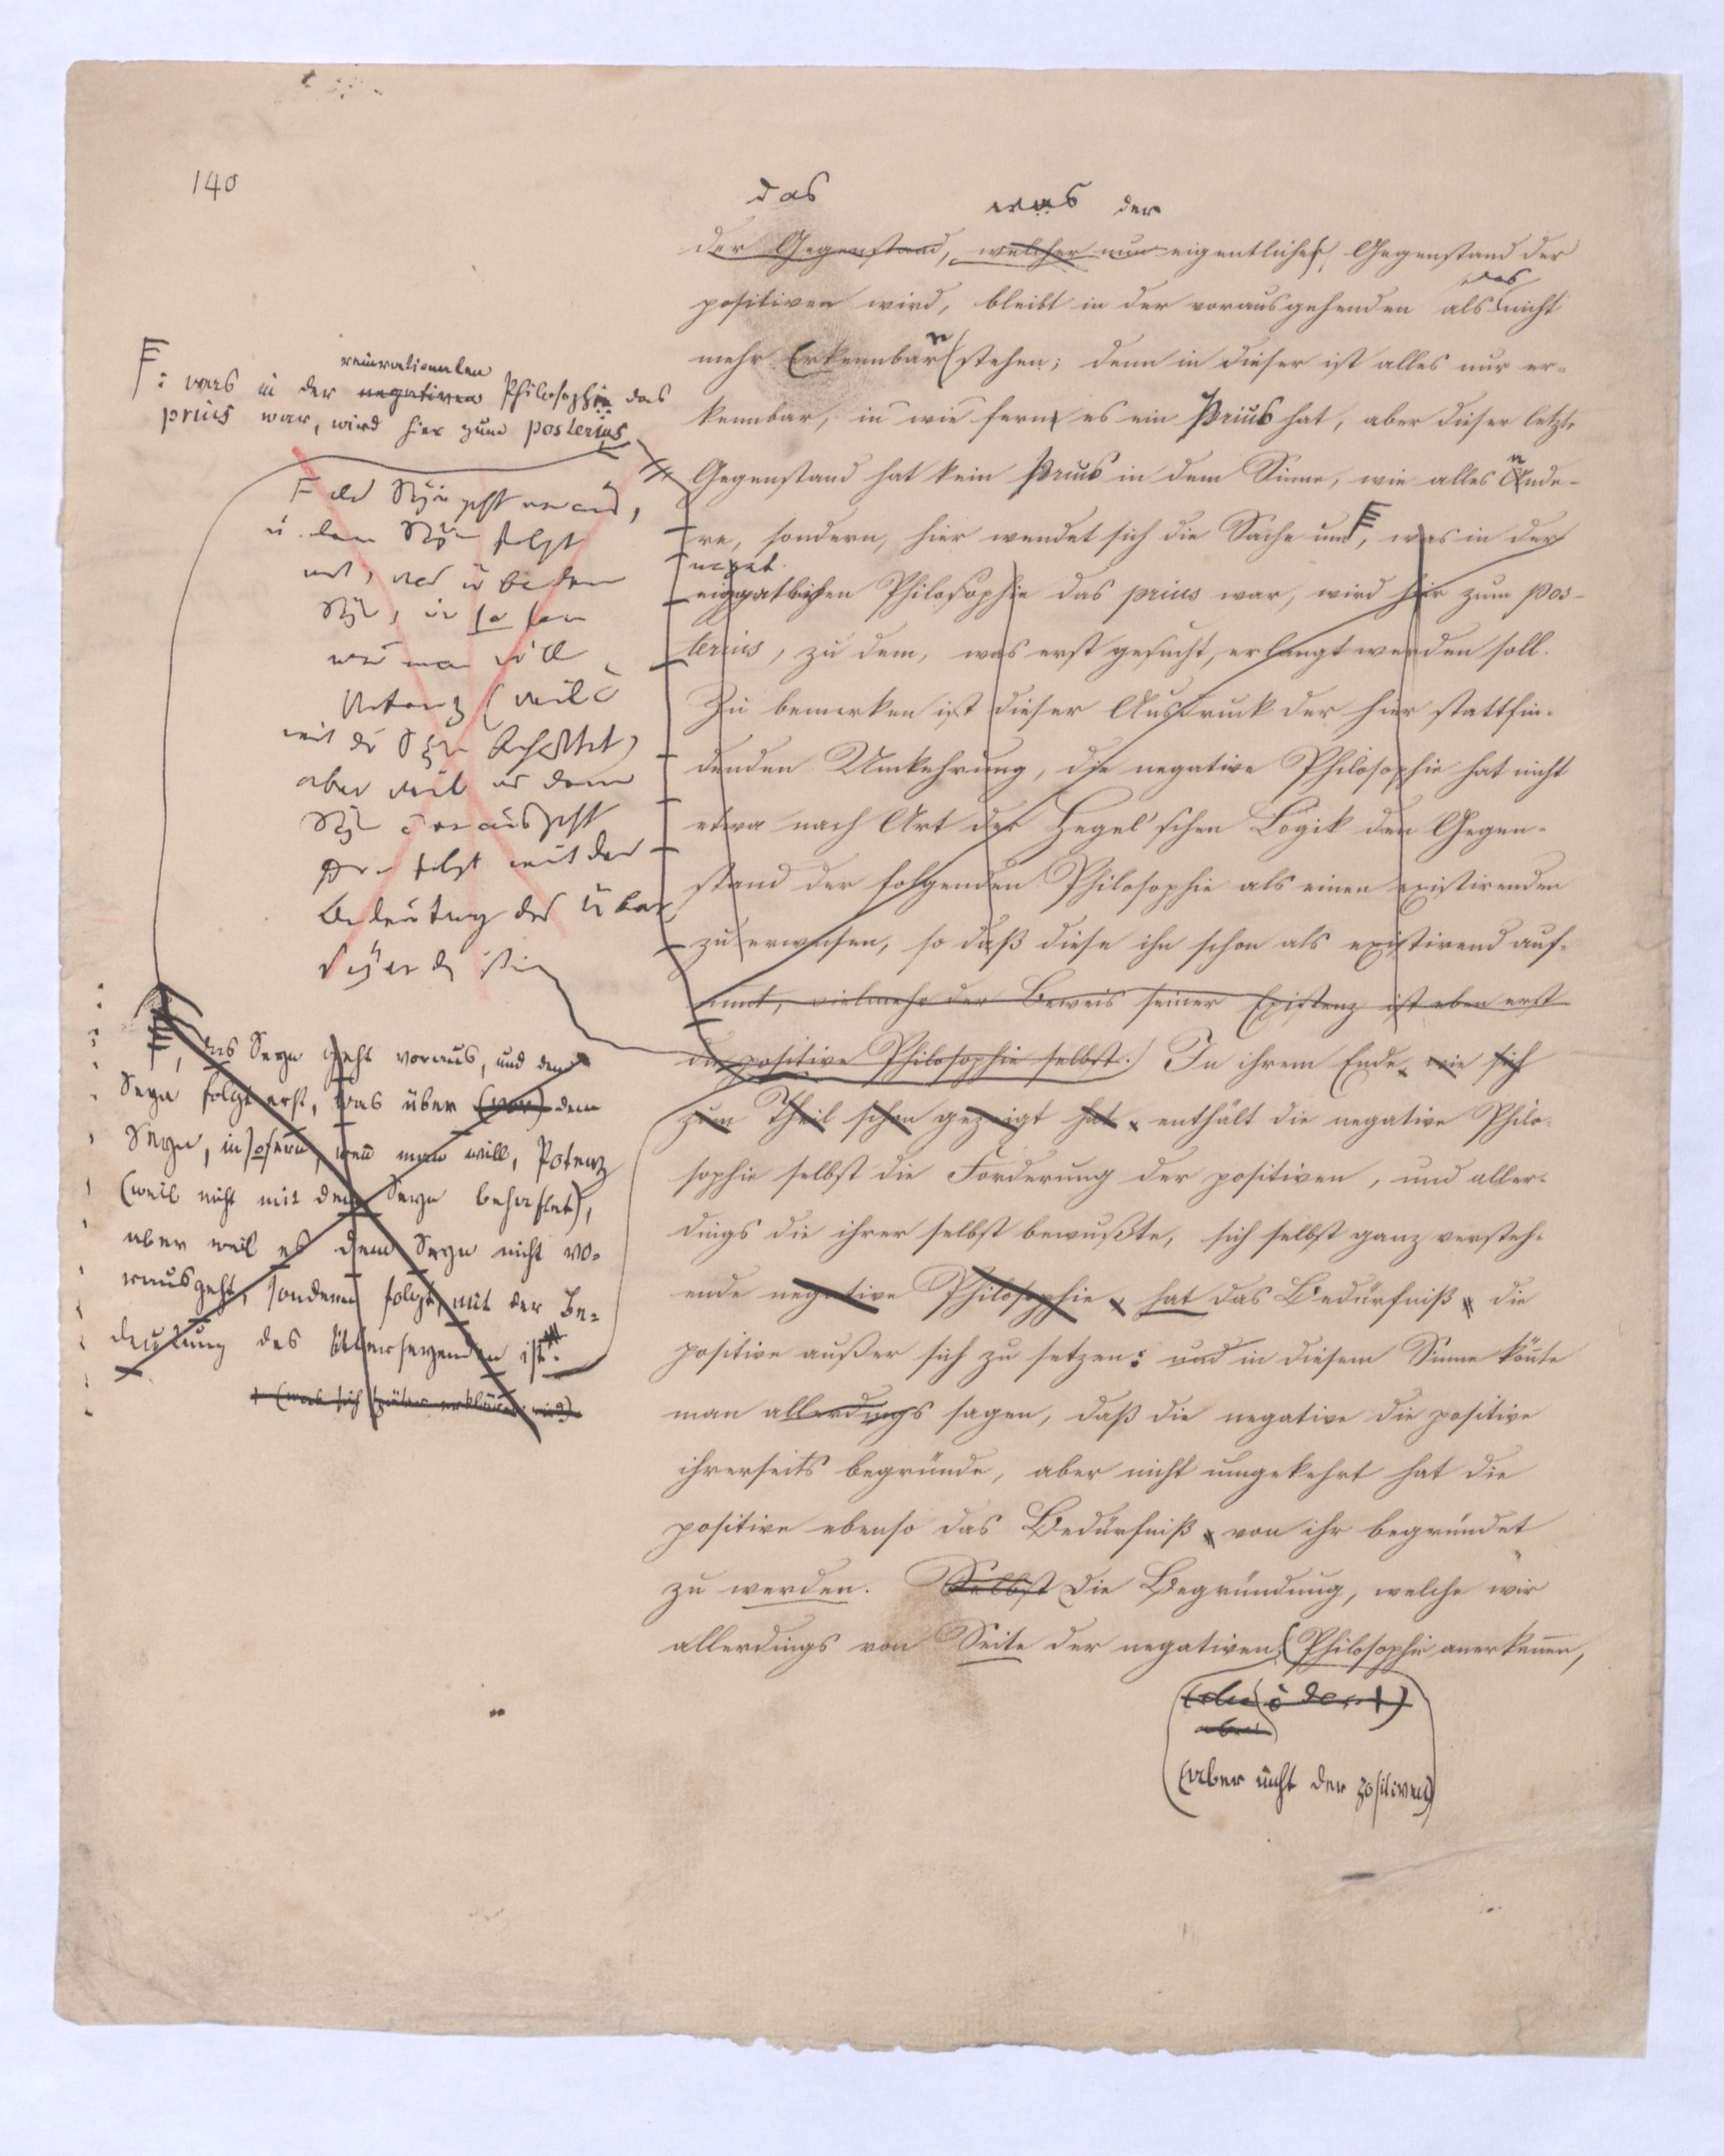 140
das was der
der Gegenstand, welcher nun eigentlicher, Gegenstand der
das
positiven wird, bleibt in der vorausgehenden als nicht
mehr Erkennbaren stehen; denn in dieser ist alles nur er-
kennbar, in wie fern es ein Prius hat, aber dieser letzte
Gegenstand hat kein Prius in dem Sinne, wie alles Ande-
re, sondern, hier wendet sich die Sache um, was in der
negat.
Philosophie das prius war, wird hier zum pos-
terius, zu dem, was erst gesucht, erlangt werden soll.
Zu bemerken ist dieser Ausdruck der hier stattfin-
denden Umkehrung, die negative Philosophie hat nicht
etwa nach Art der Hegel'schen Logik den Gegen-
stand der folgenden Philosophie als einen existirenden
zu erweisen, so daß diese ihn schon als existirend auf-
nimt, vielmehr der Beweis seiner Existenz ist eben erst
die positive Philosophie selbst.) In ihrem Ende, wie sich
zum Theil schon gezeigt hat, enthält die negative Philo-
sophie selbst die Forderung der positiven, und aller-
dings die ihrer selbst bewußte, sich selbst ganz versteh-
ende negative Philosophie, hat das Bedürfniß, die
positive außer sich zu setzen: und in diesem Sinne könte
man allerdings sagen, daß die negative die positive
ihrerseits begründe, aber nicht umgekehrt hat die
positive ebenso das Bedürfniß, von ihr begründet
zu werden. Selbst Die Begründung, welche wir
allerdings von Seite der negativen Philosophie anerkennen,
(aber nicht der positiven)
reinrationalen
F: was in der negativen Philosophie das
prius war, wird hier zum posterius
F das Seyn geht voraus,
u. dem Seyn folgt
Seyn, in so fern
wenn man will
Potenz (weil
mit dem Seyn behaftet)
aber weil es dem
Seyn vorausgeht
folgt mit der
Bedeutung des Über
seyenden ist
F, das Seyn geht voraus, und dem
Seyn folgt erst, was über (vor) dem
Seyn, insofern, wen man will, Potenz
(weil nicht mit dem Seyn behaftet),
aber weil es dem Seyn nicht vo-
rausgeht, sondern folgt, mit der Be-
deutung des überseyenden ist.
(was sich später erklären wird)